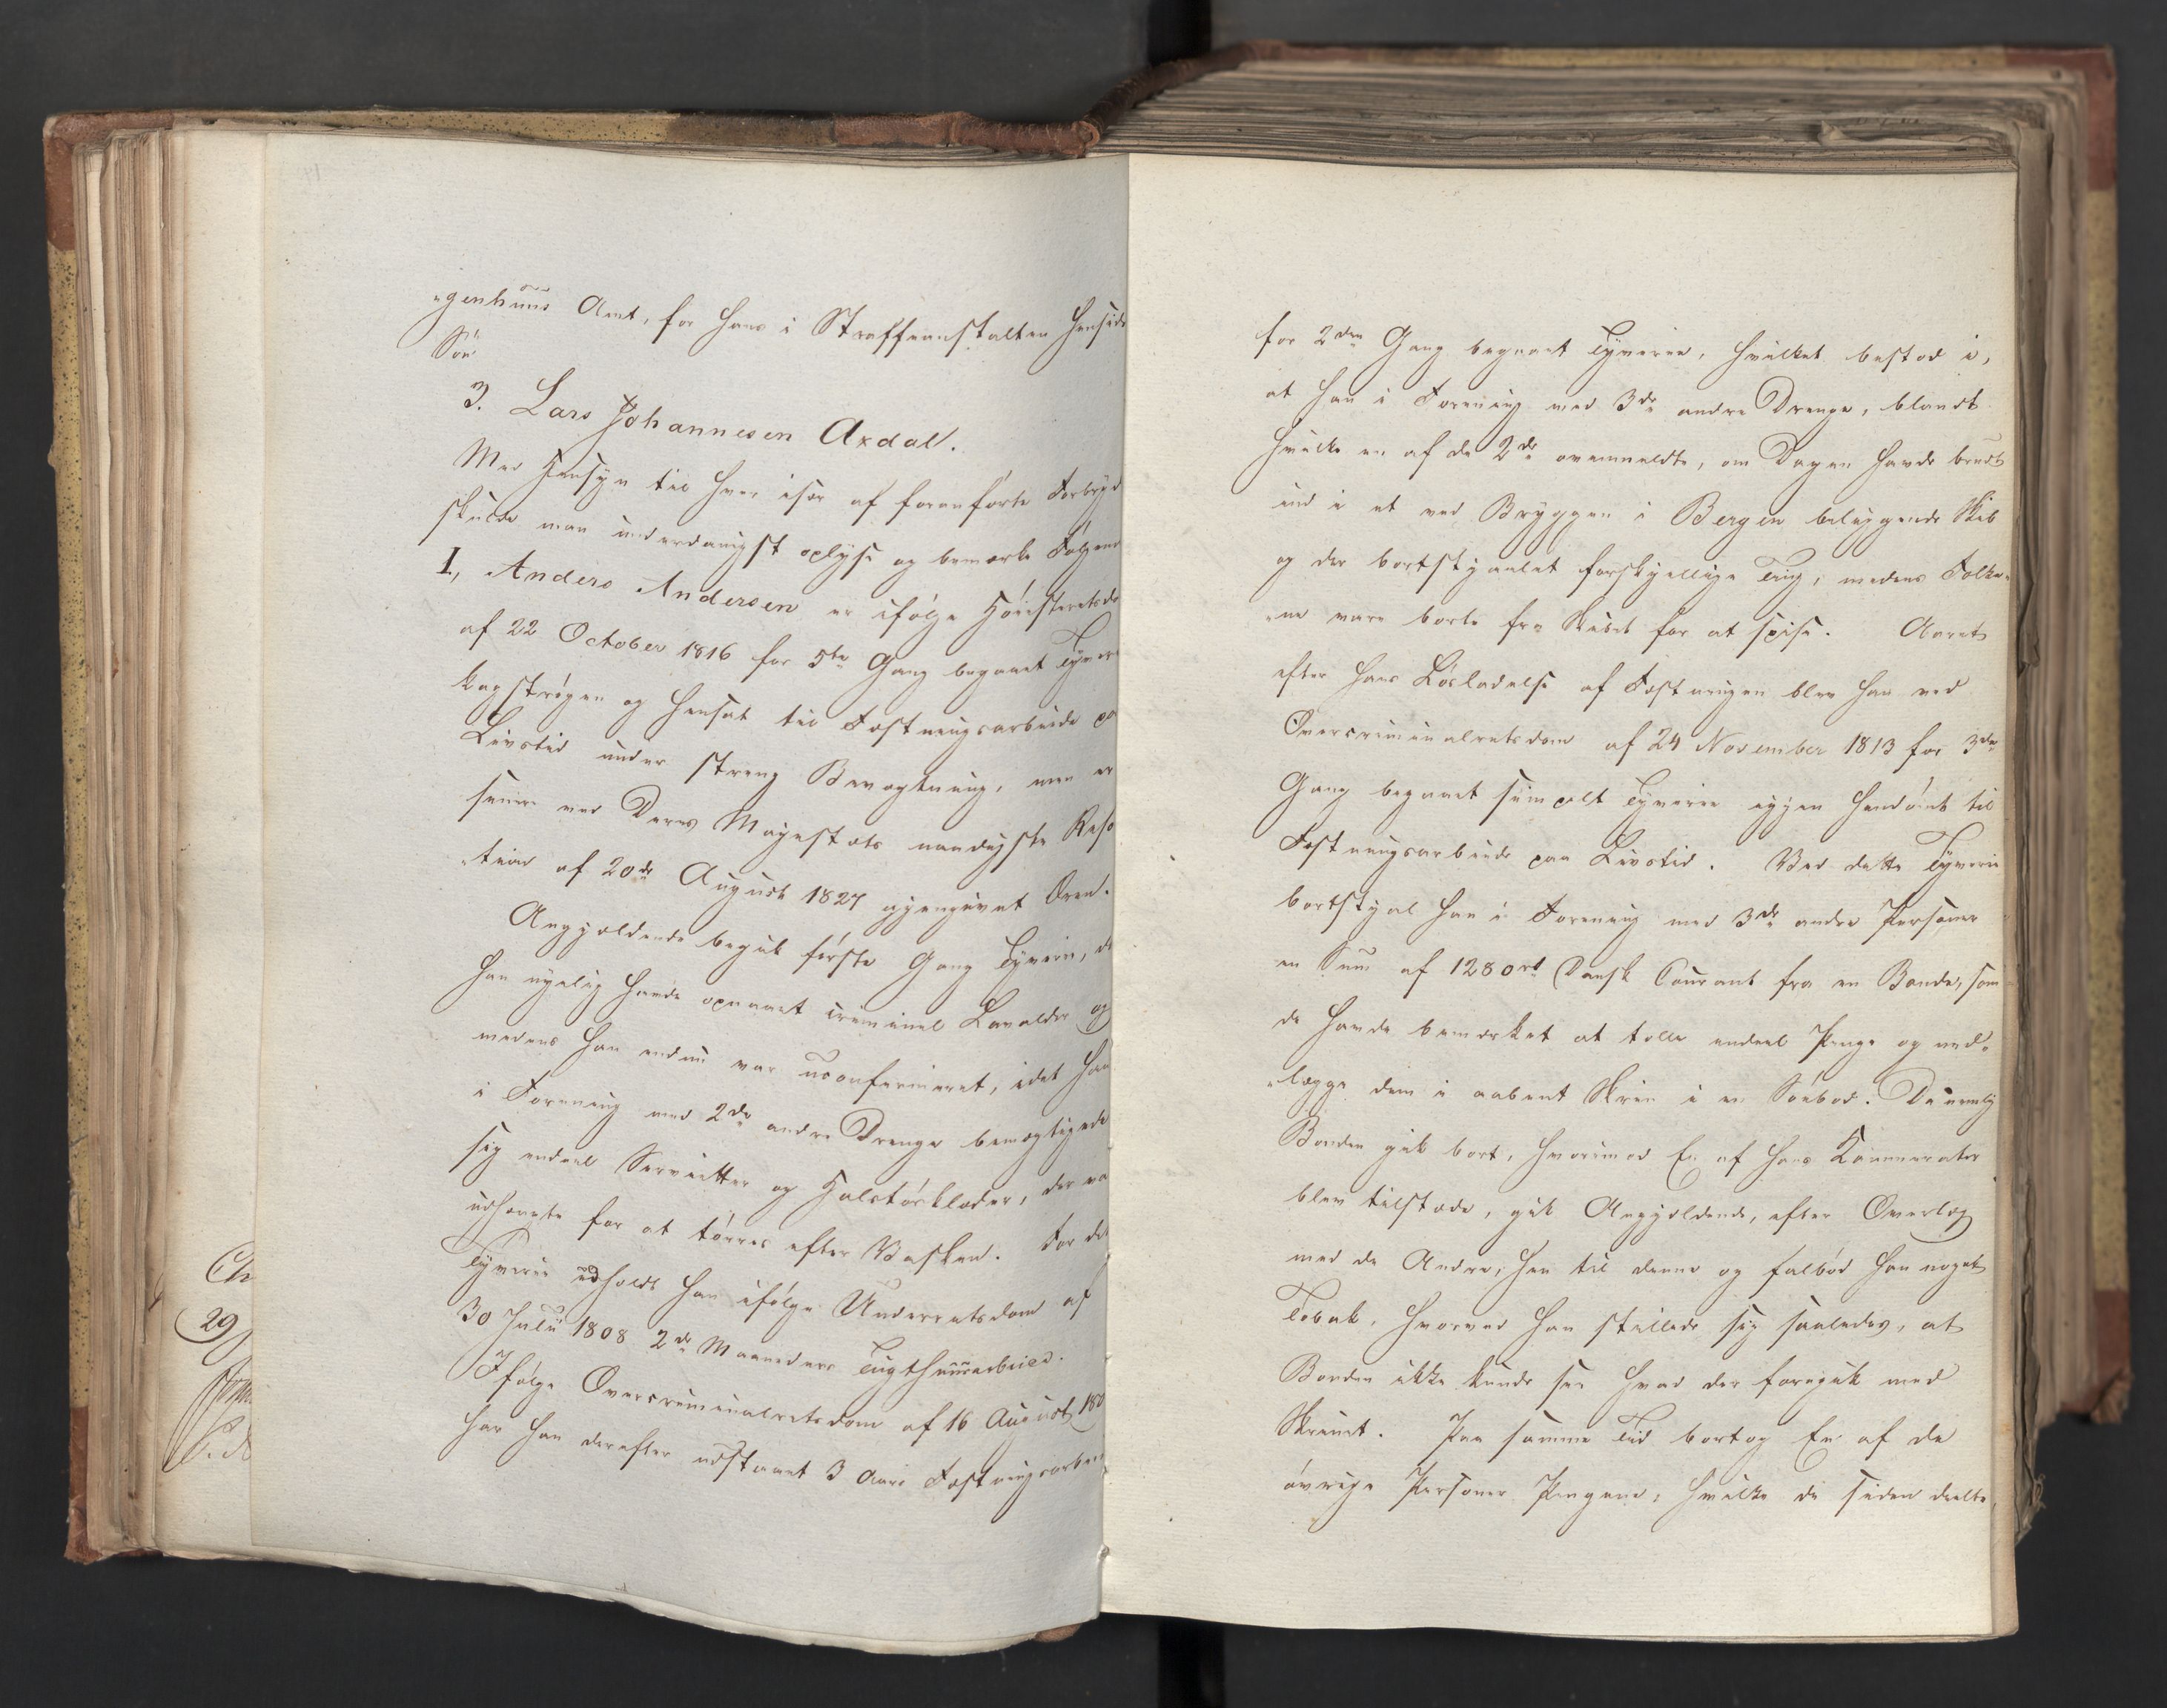 "genhuus Amt, for hans i Straffeanstalten hensidd
Søn
3. Lars Johannesen Axdal.
Med Hensyn til hver især af foranførte Forbryd
skulde man underdanigst oplyse og bemærke Følgend
I, Anders Andersen er ifølge Høiesteretsdo
af 22 October 1816 for 5te Gang begaaet Tyver
kagstrøgen og hensat til Fæstningsarbeide pa
Livstid under streng Bevogtning, men er
senere ved Deres Majestæts naadigste Reso
"tion af 20de August 1827 gjengivet Æren.
Angjældende begik første Gang Tyverie, da
han nyelig havde opnaaet criminel Lavalder og
medens han endnu var uconfirmeret, idet han
i Forening med 2de andre Drenge bemægtigede
sig endeel Servietter og Halstørklæder, der va
udhængte for at tørres efter Vasken. For det
Tyverie udholdt han ifølge Underretsdom af
30 Julii 1808 2de Maaneders Tugthuusarbeide.
Ifølge Overcriminalretsdom af 16 August 180
har han derefter udstaaet 3 Aars Fæstningsarbei
for 2den Gang begaaet Tyverie, hvilket bestod i,
at han i Forening med 3de andre Drenge, blandt
hvilke en af de 2de ovenmeldte, om Dagen havde brudt
ind i et ved Bryggen i Bergen beliggende Skib
og der bortstjaalet forskjellige Ting, medens Folke-
"ne vare borte fra Skibet for at spise. Aaret
efter hans Løsladelse af Fæstningen blev han ved
Overcriminalretsdom af 24 November 1813 for 3die
Gang begaaet simpelt Tyverie igjen hendømt til
Fæstningsarbeide paa Livstid. Ved dette Tyverie
bortstjal han i Forening med 3de andre Personer
en Sum af 1280 rd Dansk Courant fra en Bonde, som
de havde bemærket at tælle endeel Penge og ned-
"lægge dem i aabent Skrin i en Søebod. Da nemlig
Bonden gik bort, hvorimod En af hans Kammerater
blev tilstæde, gik Angjældende, efter Overlæg
med de Andre, hen til denne og falbød ham noget
Tobak, hvorved han stillede sig saaledes, at
Bonden ikke kunde see hvad der foregik med
Skrinet. Paa samme Tid borttog En af de
øvrige Personer Pengene, hvilke de siden deelte
Ch
29